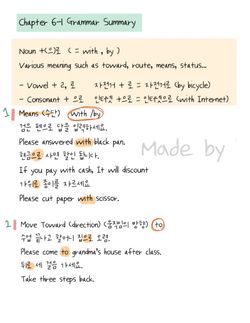 Chapter 6-1 Grammar Summary
Noun +(으)로 ( = with , by )
Various meaning such as toward, route, means, status...
- Vowel + ㄹ, 로 자전거 + 로 = 자전거로 (by bicycle)
- Consonant + 으로 인터넷 + 으로 = 인터넷으로 (with Internet)
1 Means (수단) With / by
검은 펜으로 답을 입력하세요.
Please answered with black pan.
현금으로 사면 할인 됩니다.
If you pay with cash, It will discount
가위로 종이를 자르세요
Please cut paper with scissor.
2 Move Toward (direction) (움직임의 방향) to
수업 끝나고 할머니 집으로 오렴.
Please come to grandma's house after class.
뒤로 세 걸음 가세요.
Take three steps back.
Made by